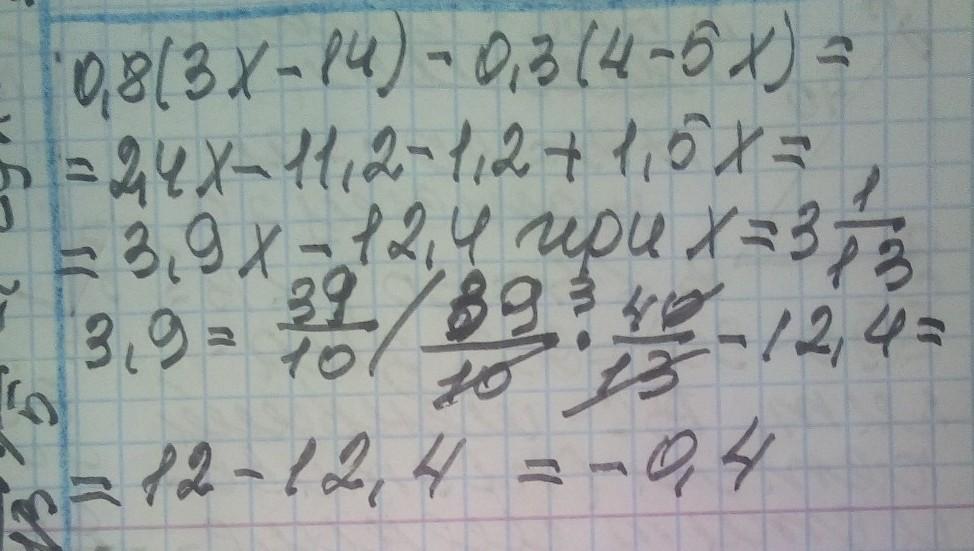 0,8(3x-14)-0,3(4-5x)=
=2,4x-11,2-1,2+1,5x=
=3,9x-12,4 при x=3 1/13
3,9= 39/10 / 39/10 ³ · 40/13 -12,4=
=12-12,4 =-0,4